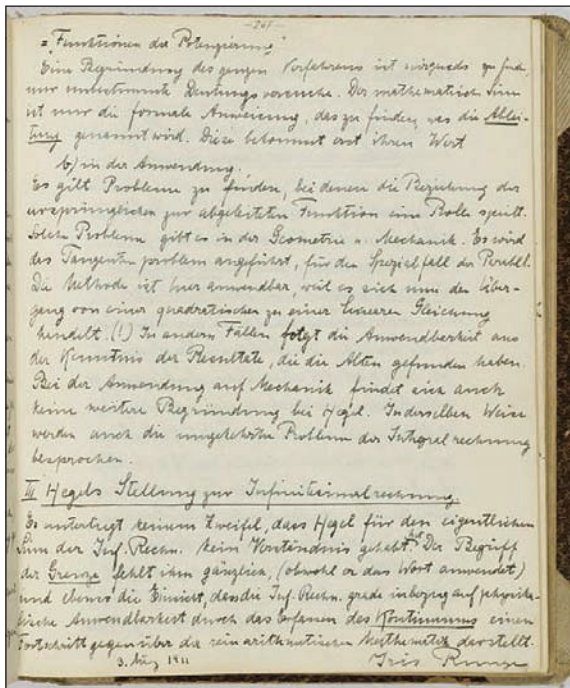 - 261 -
= „Funktionen der Potenzierung"
Eine Begründung des ganzen Verfahrens ist nirgends zu finden,
nur unbestimmte Deutungsversuche. Der mathematische Sinn
ist nur die formale Anweisung, das zu finden, was die Ablei-
tung genannt wird. Diese bekommt erst ihren Wert
b) in der Anwendung.
Es gilt Probleme zu finden, bei denen die Beziehung der
ursprünglichen zur abgeleiteten Funktion eine Rolle spielt.
Solche Probleme gibt es in der Geometrie u. Mechanik. Es wird
das Tangentenproblem angeführt, für den Spezialfall der Parabel.
Die Methode ist hier anwendbar, weil es sich um den Über-
gang von einer quadratischen zu einer linearen Gleichung
handelt. (!) In andern Fällen folgt die Anwendbarkeit aus
der Kenntnis der Resultate, die die Alten gefunden haben.
Bei der Anwendung auf Mechanik findet sich auch
keine weitere Begründung bei Hegel. In derselben Weise
werden auch die umgekehrten Probleme der Integralrechnung
besprochen.
III Hegels Stellung zur Infinitesimalrechnung.
Es unterliegt keinem Zweifel, dass Hegel für den eigentlichen
Sinn der Inf. Rechn. kein Verständnis gehabt hat. Der Begriff
der Grenze fehlt ihm gänzlich, (obwohl er das Wort anwendet)
und ebenso die Einsicht, dass die Inf. Rechn. grade in bezug auf physika-
lische Anwendbarkeit durch das Erfassen des Kontinuums einen
Fortschritt gegenüber der rein arithmetischen Mathematik darstellt.
3. März 1911
Iris Runge